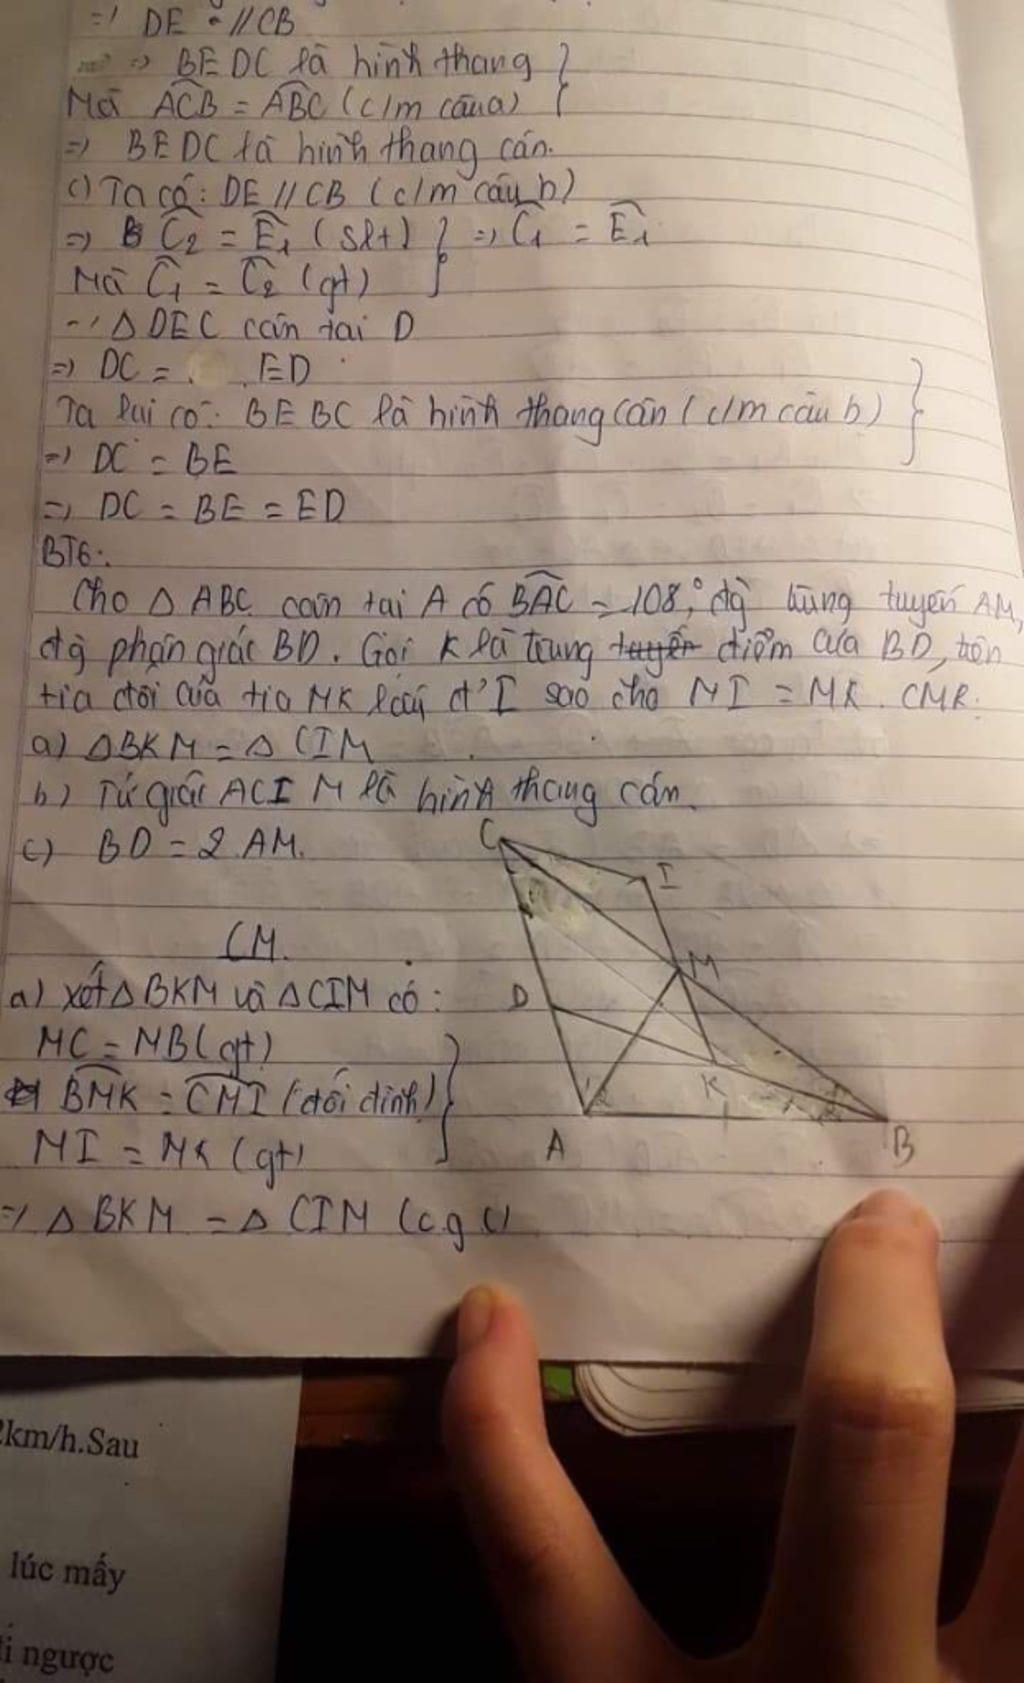 => DE // CB
=> BEDC là hình thang
Mà ACB = ABC (c/m câu a)
=> BEDC là hình thang cân.
c) Ta có: DE // CB (c/m câu b)
=> C2 = E1 (slt) => C1 = E1
Mà C1 = C2 (gt)
=> Δ DEC cân tại D
=> DC = ED
Ta lại có: BEBC là hình thang cân (c/m câu b)
=> DC = BE
=> DC = BE = ED
BT6:
Cho Δ ABC cân tại A có BAC = 108°, đg trung tuyến AM,
đg phân giác BD. Gọi K là trung tuyến điểm của BD, trên
tia đối của tia MK lấy đ' I sao cho MI = MK. CMR:
a) ΔBKM = Δ CIM
b) Tứ giác ACIM là hình thang cân.
c) BD = 2 AM.
C
I
CM.
M
a) Xét Δ BKM và Δ CIM có:
D
MC = MB (gt)
K
BMK = CMI (đối đỉnh)
MI = MK (gt)
A
B
=> Δ BKM = Δ CIM (c.g.c)
2km/h.Sau
lúc mấy
ngược